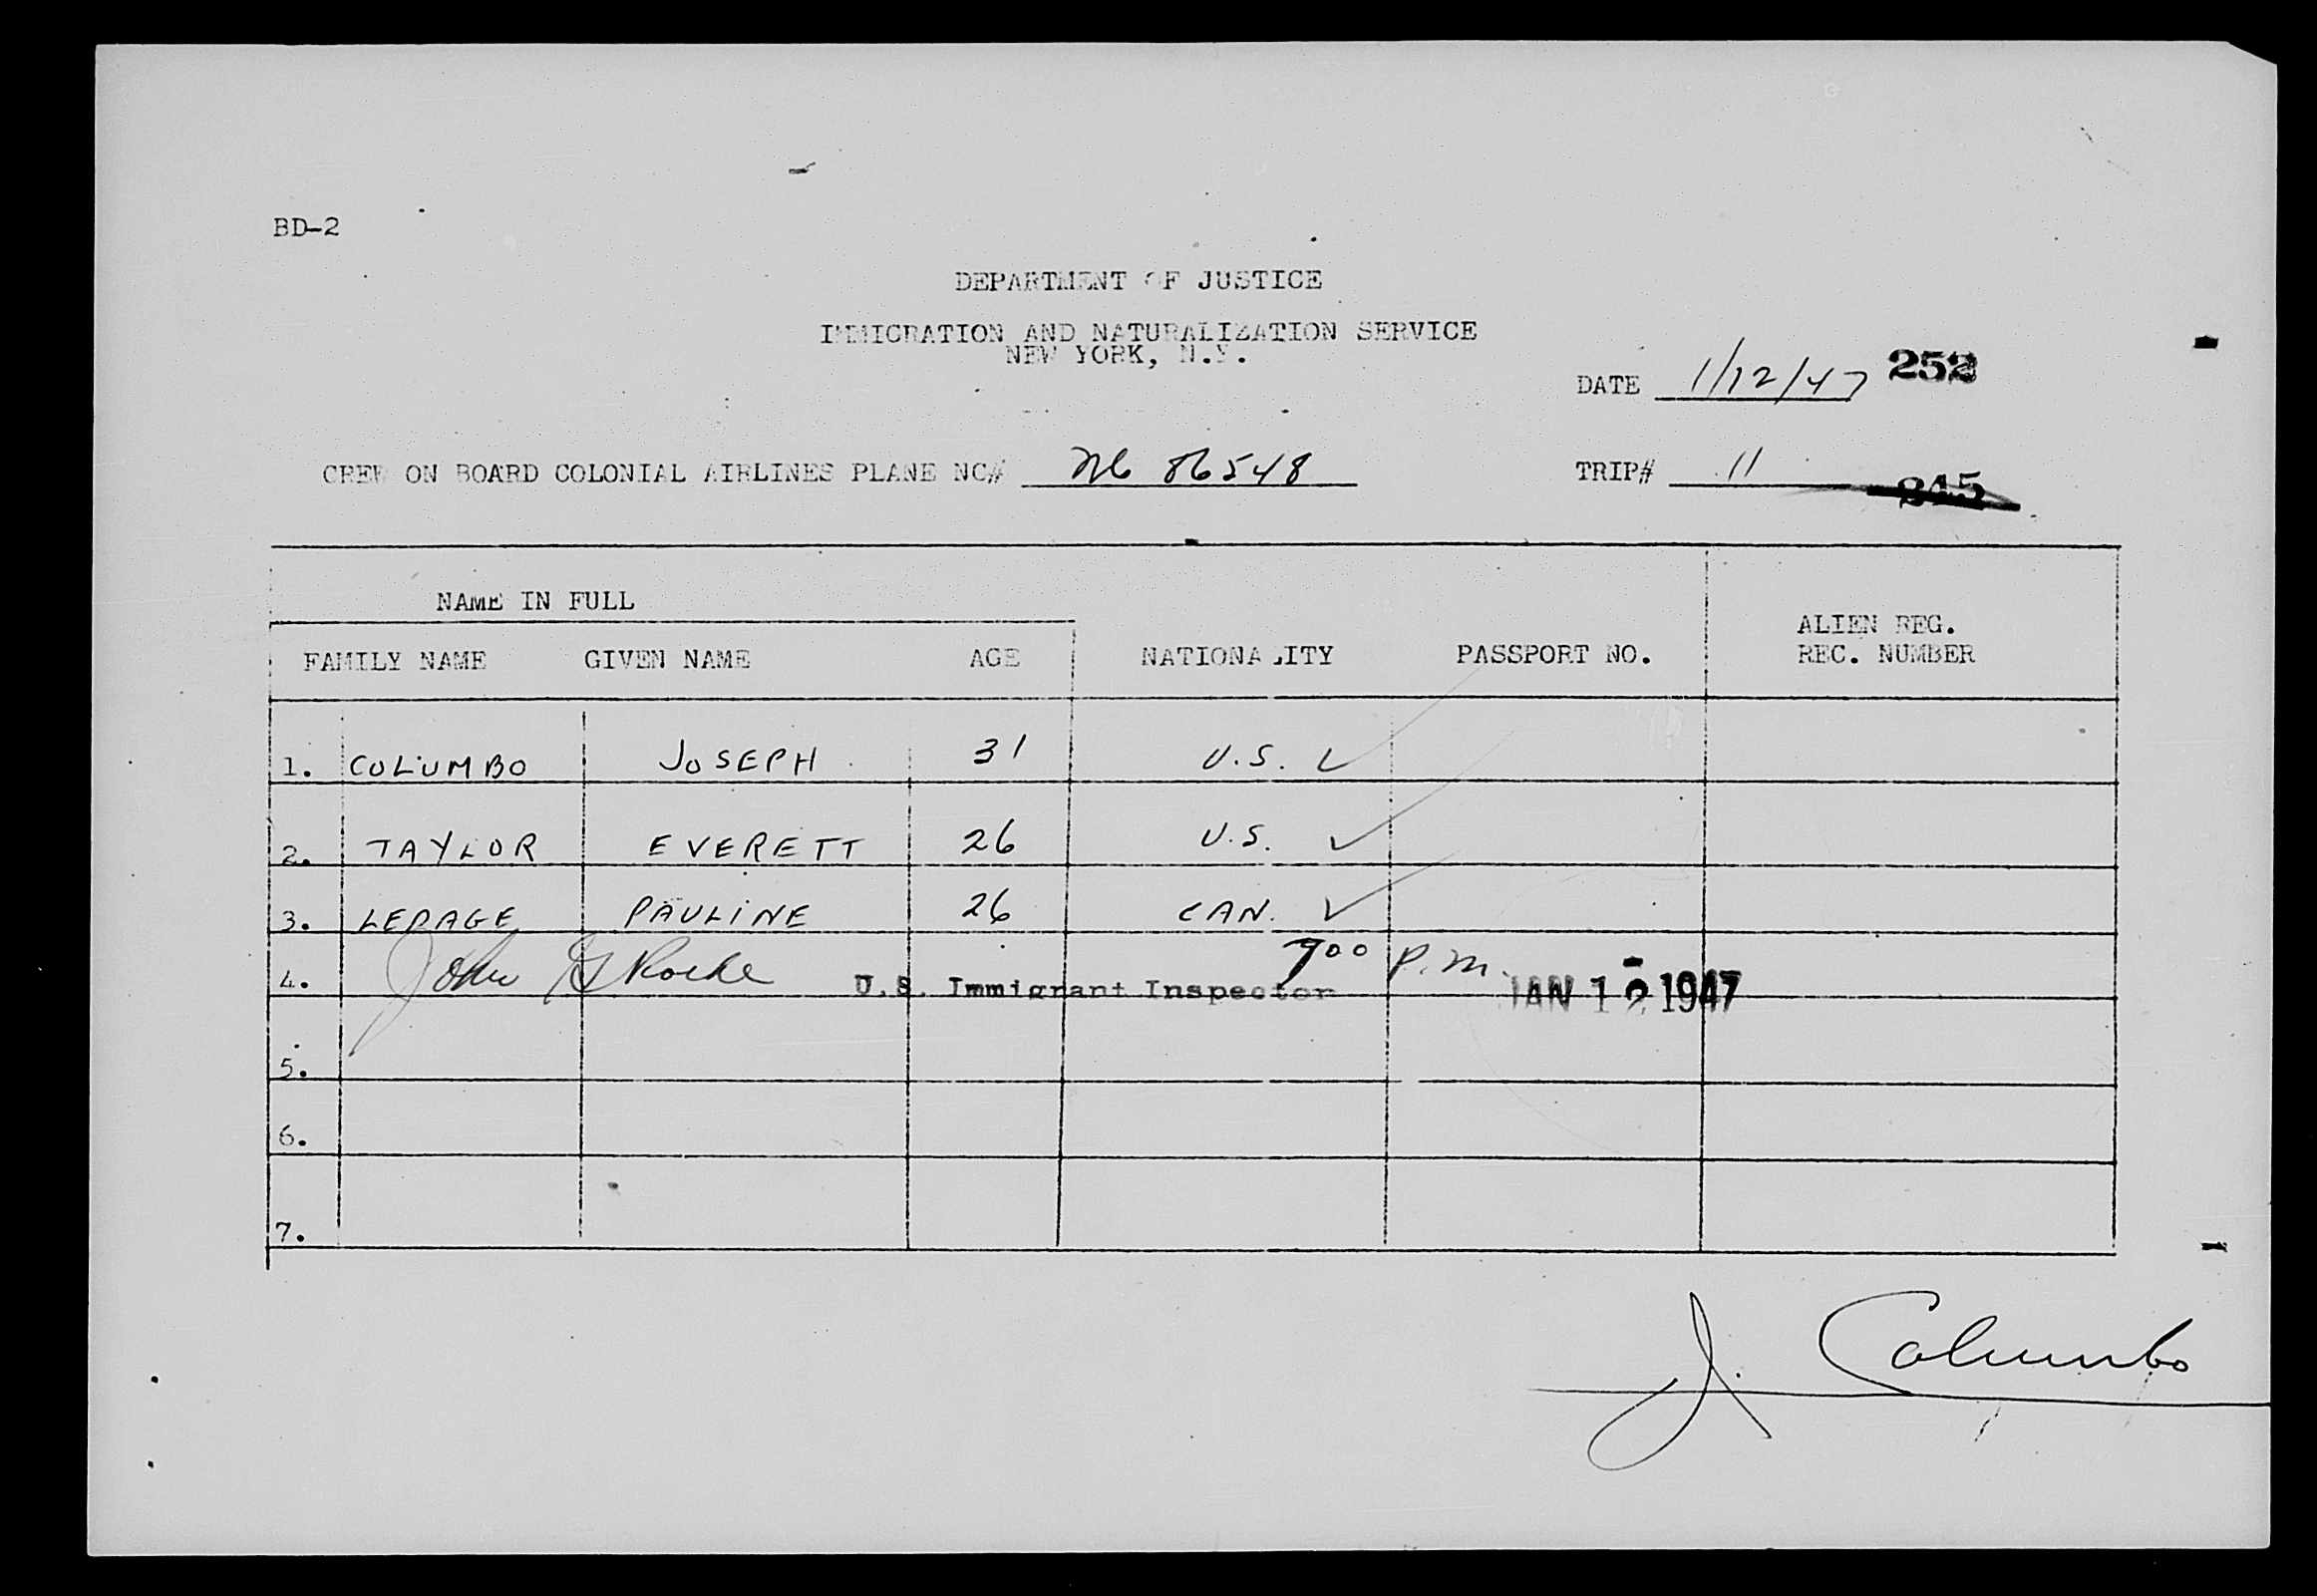 BD-2
DEPARTMENT OF JUSTICE
IMMIGRATION AND NATURALIZATION SERVICE
NEW YORK, N.Y.
DATE 1/12/47 252
CREW ON BOARD COLONIAL AIRLINES PLANE NC# NC 86548 TRIP# 11
245
NAME IN FULL
FAMILY NAME GIVEN NAME AGE NATIONALITY PASSPORT NO. ALIEN REG.
REC. NUMBER
1. COLUMBO JOSEPH 31 U.S. ✓
2. TAYLOR EVERETT 26 U.S. ✓
3. LEPAGE PAULINE 26 CAN. ✓
4. John U.S. Immigrant Inspector 700 P.M. JAN 12 1947
5.
6.
7.
J. Columbo